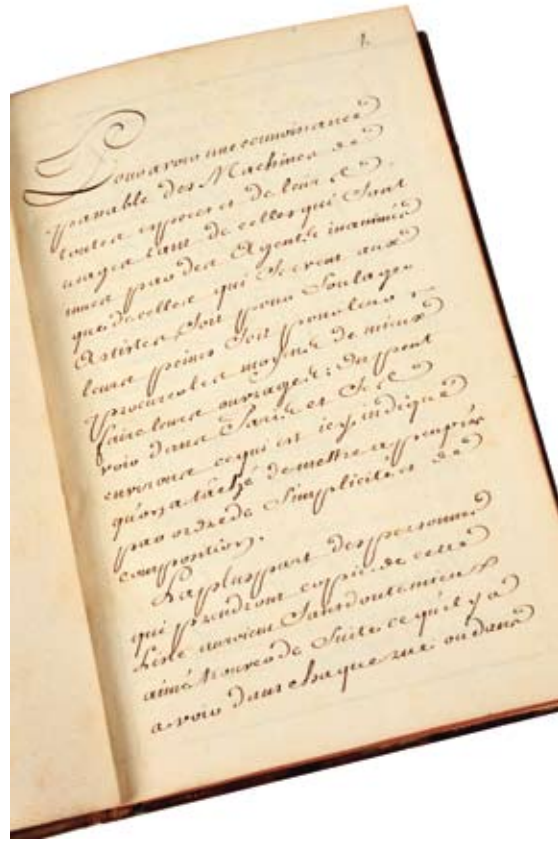 1.
Pour avoir une connoissance
passable des Machines de
toutes especes et de leurs
usages tant de celles qui sont
mues par des Agents inanimés
que de celles qui servent aux
Artistes soit pour soulager
leurs peines soit pour leur
procurer les moyens de mieux
faire leurs ouvrages; on peut
voir dans Paris et ses
environs ce qui est icy indiqué
qu'on a taché de mettre a peu près
par ordre de simplicité et de
composition.
La plus part des personnes
qui prendront coppie de cette
liste auroient sans doute mieux
aimé trouver de suite ce qu'il y a
a voir dans chaque rue ou dans